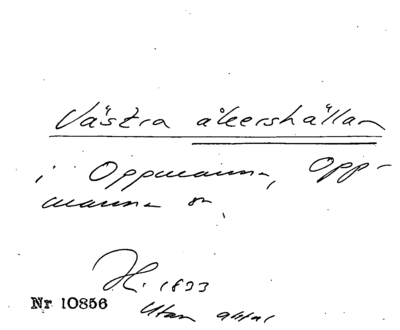 Västra åkershällan
i Oppmanna, Opp-
manna sn.
H. 1833
Nr 10856
Utan